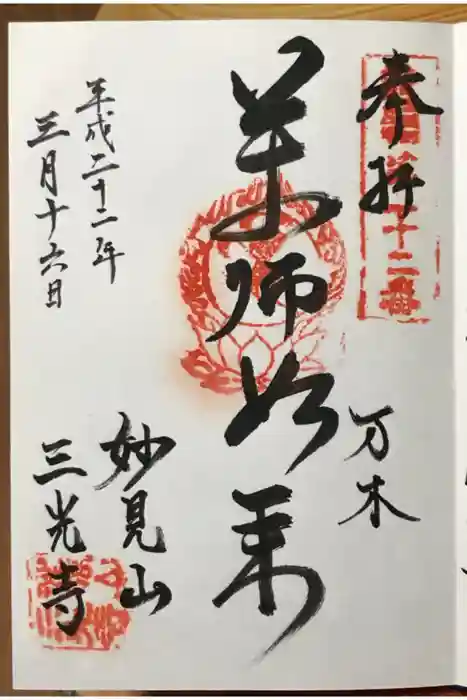 奉拝
十二番
万木
薬師如来
妙見山
三光寺
平成二十二年
三月十六日